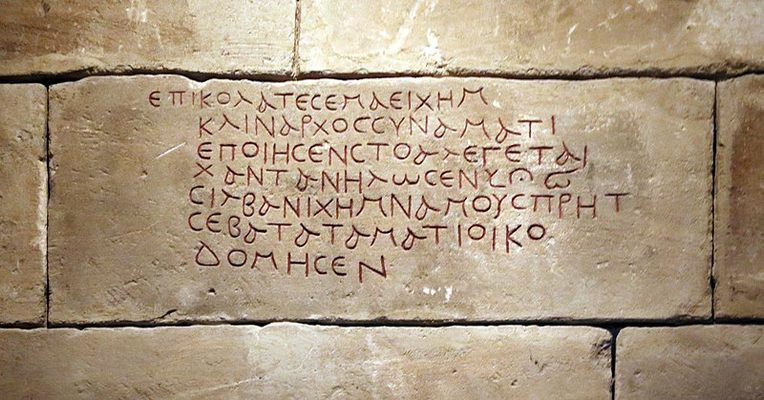 ΕΠΙΚΟΛΑΤΕϹΕΜΑΕΙΧΗΜ
ΚΛΙΝΑΡΧΟϹϹΥΝΑΜΑΤΙ
ΕΠΟΙΗϹΕΝϹΤΟΑΛΕΓΕΤΑΙ
ΧΑΝΤΑΝΗΛΩϹΕΝ
ϹΙΛΒΑΝΙΧΗΜΝΑΜΟΥϹΠΡΗΤ
ϹΕΒΑΤΑΤΑΜΑΤΙΟΙΚΟ
ΔΟΜΗϹΕΝ